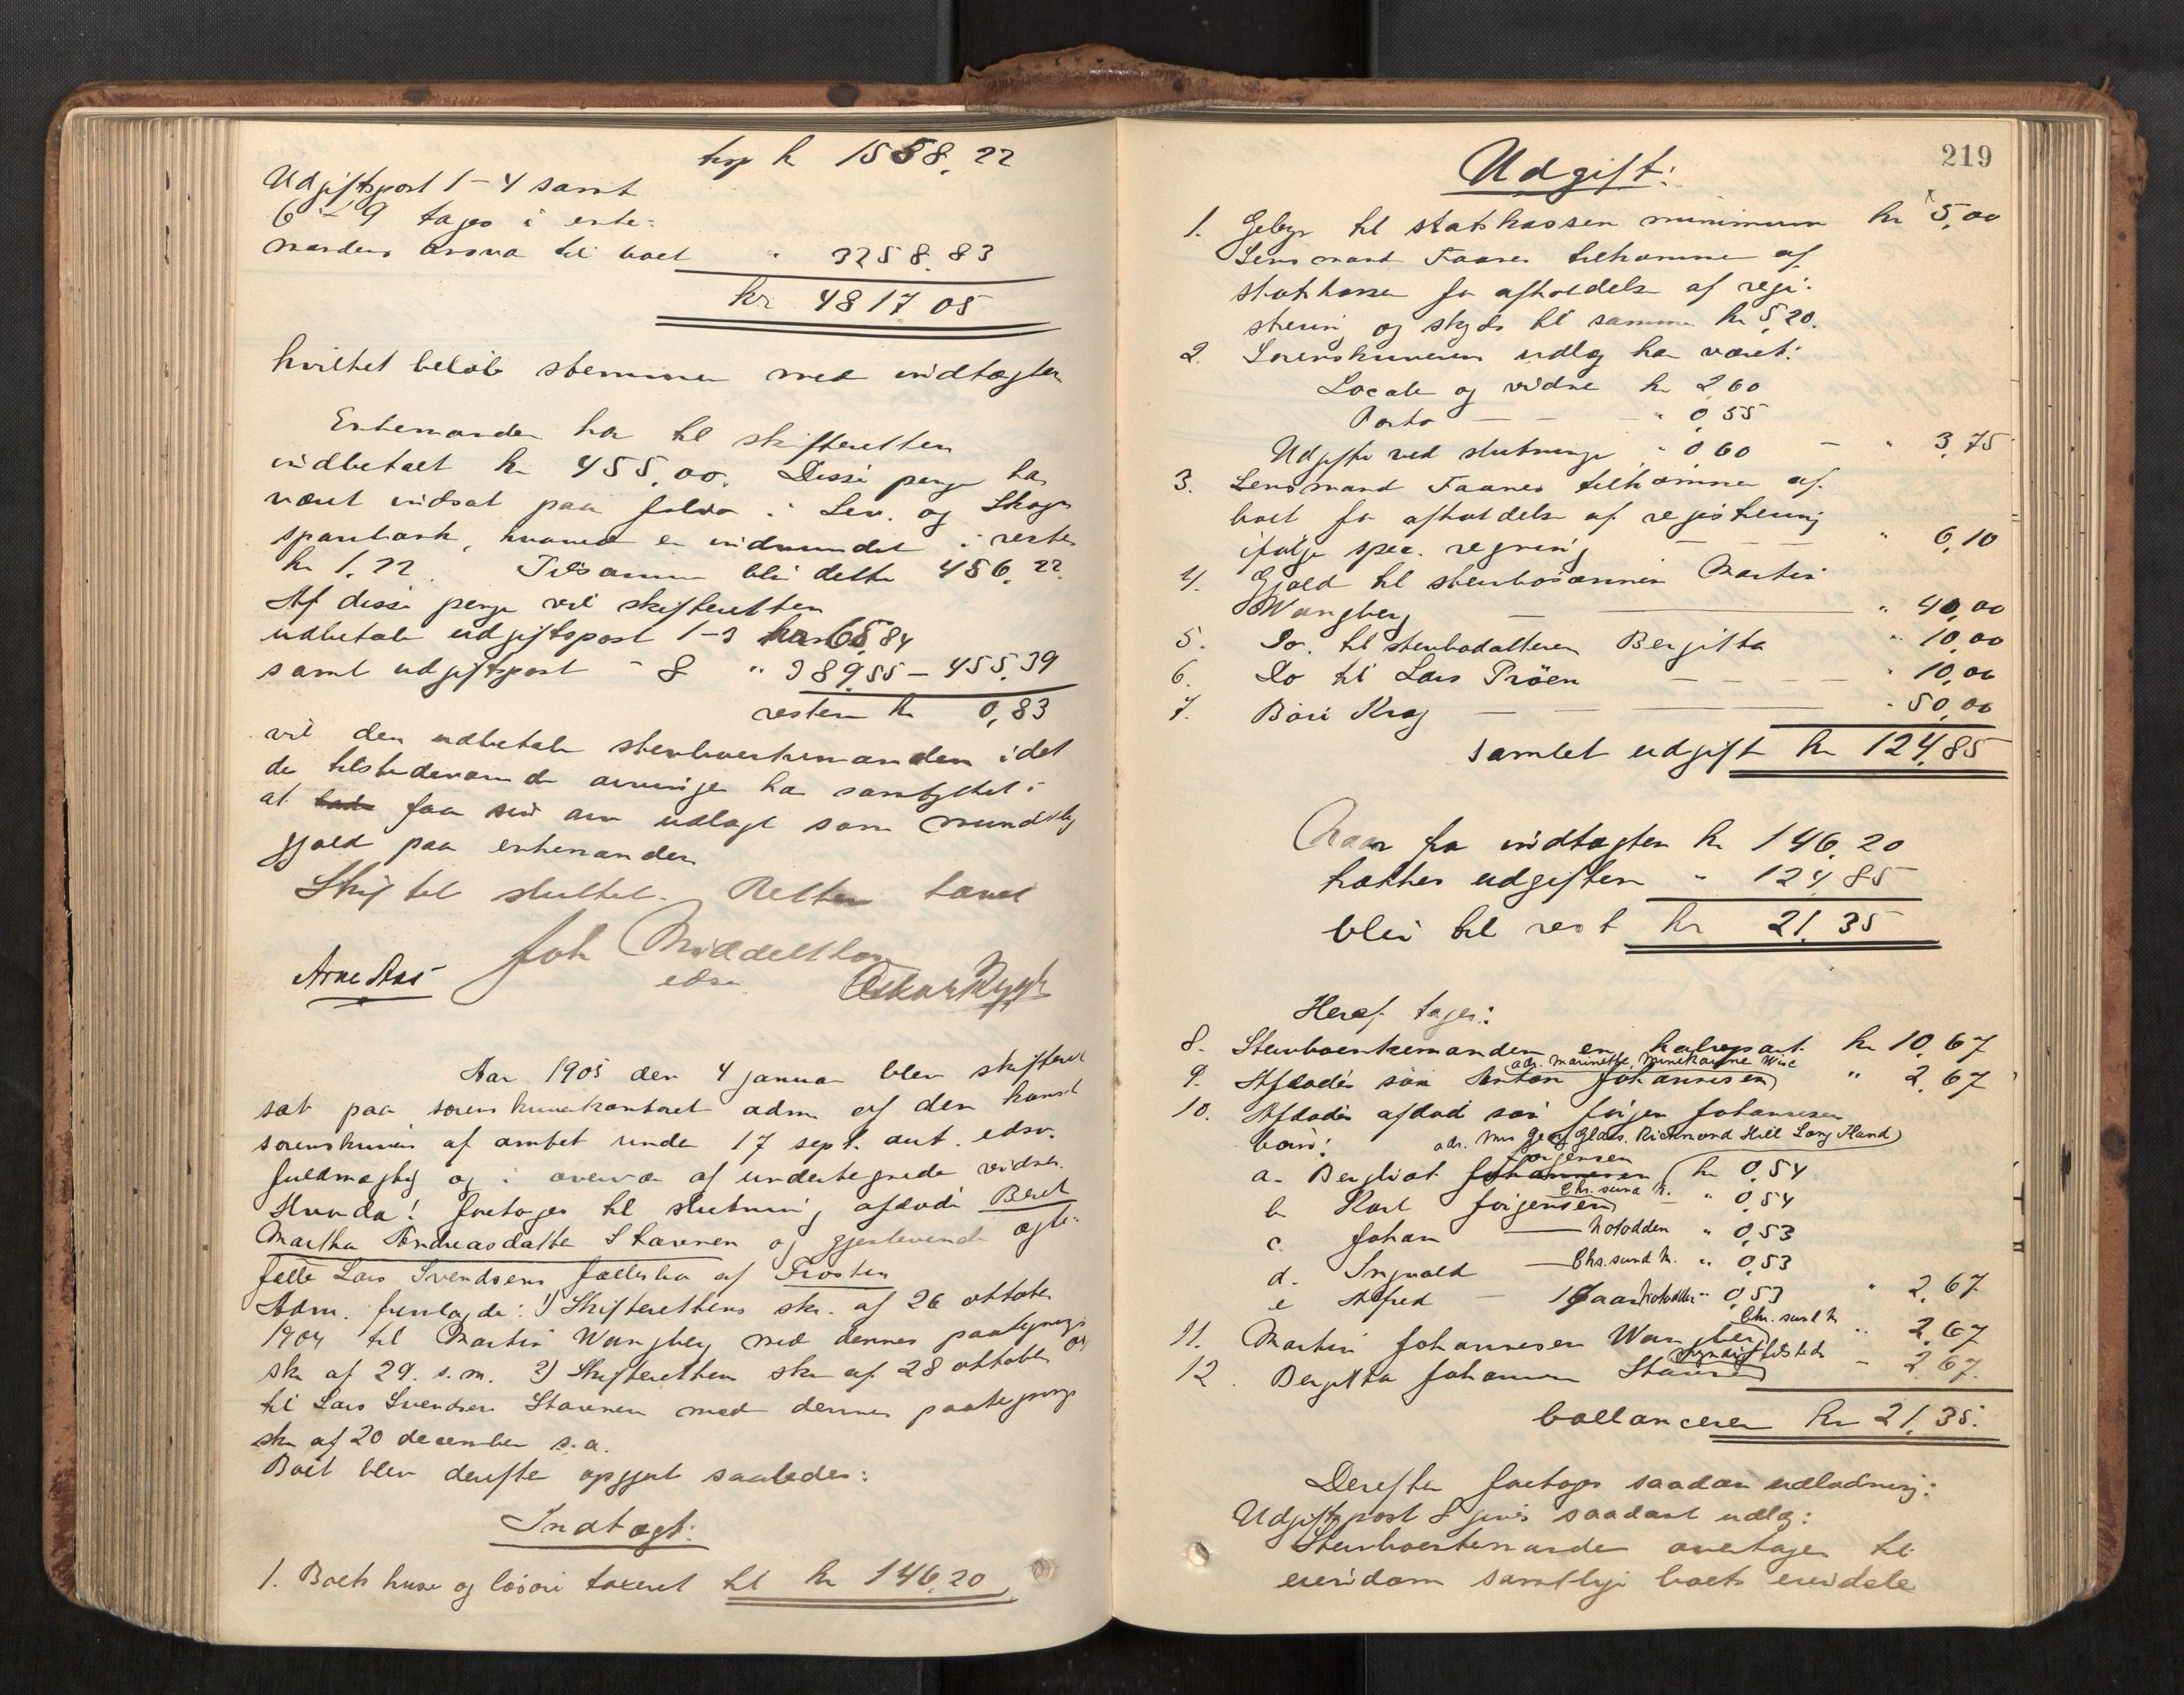 trsp kr 1558,22
Udgiftspost 1-4 samt
6 - 9 tages i enke-
mandens ansva til boet " 3258.83
kr 4817.05
hvilket beløb stemmer med indtægten
Enkemanden har til skifteretten
indbetalt kr 455,00. Disse penge har
været indsat paa folio i Lev. og Skogn
sparebank, hvorved er indvundet i renter
kr 1.22. Tilsammen bli dette 456.22.
Af disse penge vil skifteretten
udbetale udgiftspost 1-3 kr 65,84
samt udgiftspost - 8 " 389,55 - 455,39
resten kr 0,83
vil den udbetale sterboenkemanden idet
de tilstedeværende arvinge har samtykket i
at faa sin arv udlagt som mundtlig
gjæld paa enkemanden
Skiftet sluttet. Retten hævet
Joh Middelthon
edsv.
Arne Aas
Oskar Rygh
Aar 1905 den 4 januar blev skifteret
sat paa sorenskriverkontoret adm af den konst
sorenskriver af ambet under 17 sept. aut. edsv.
fuldmægtig og i overvær af undertegnede vidner.
Hvorda! foretoges til slutning afdøde Beret
Martha Andreasdatter Stavren og gjenlevende ægte-
fælle Lars Svendsens fællesbo af Frosten
Adm. fremlagde: 1) Skifterettens skr. af 26 oktober
1904 til Martin Wangberg med dennes paategnings
skr af 29. s.m. 2) Skifterettens skr af 28 oktober
til Lars Svendsen Stavren med dennes paategnings
skr af 20 december s.a.
Boet blev derefter opgjort saaledes:
Indtægt:
1. Boets huse og løsøre taxeret til kr 146,20
219
Udgift:
1. Gebyr til statskassen minimum kr 5,00
Lensmand Faanes tilkommer af
statskassen for afholdelse af regi-
strering og skyds til samme kr 5,20.
2. Sorenskriveren udlæg har været:
Locale og vidne kr 2,60
Porto - - " 0,55
Udgifter ved slutninge " 0,60 - " 3,75
3. Lensmand Faanes tilkommer af
boet for afholdelse af registrering
ifølge spec. regning " 6,10
4. Gjæld til sterbosønnen Martin
Wangberg " 40,00
5. Do. til sterbodatteren Bergitta " 10,00
6. Do til Lars Prøen " 10,00
7. Krog " 50,00
samlet udgift kr 124,85
Naar fra indtægten kr 146,20
trækkes udgiften " 124,85
bli til rest kr 21,35
Heraf tages:
8. Sterboenkemanden en halvpart kr 10,67
adr. Marinette, Wise
9. Afdødes søn Anton Johannesen " 2,67
10. Afdødes afdød søn Jørgen Johannesen
børn: adr. Mrs Georg Glaes. Richmond Hill Long Iland
Jørgensen
a. Bergliot Johannesen kr 0,54
b Karl Jørgensen Chr.sund N. " 0,54
c. Johan - Notodden " 0,53
d. Ingvald - Chr.sund N. " 0,53
e Alfred - 17 aar Notodden " 0,53 " 2,67
Chr. sund N
11. Martin Johannesen Wangberg " 2,67
myndig tilstede
12. Bergitta Johannesen Stavren - 2,67.
ballancerer kr 21,35.
Derefter foretoges saadan udlodning:
Udgiftspost 8 gives saadant udlæg:
Sterboenkemanden overtager til
eiendom samtlige boets eiendele